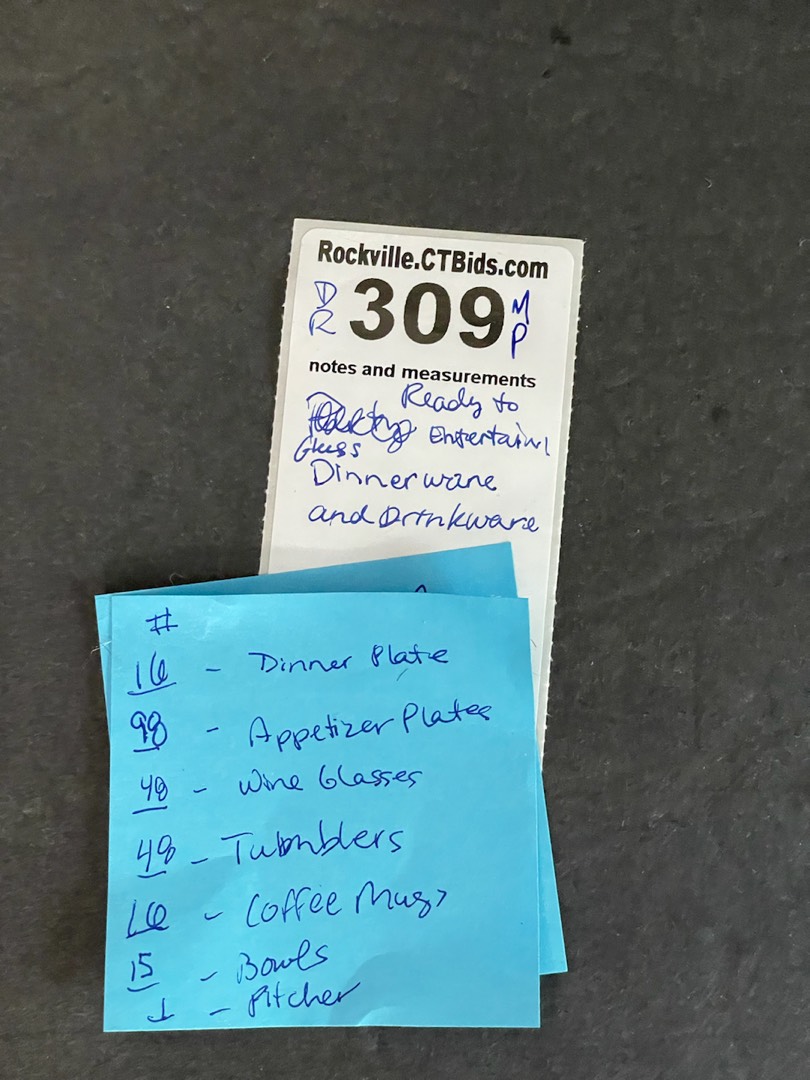 Rockville.CTBids.com
DR 309 MP
notes and measurements
Ready to
Entertainl
Glass
Dinnerware
and Drinkware
#
16 - Dinner Plate
98 - Appetizer Plates
48 - Wine Glasses
48 - Tubmblers
16 - Coffee Mugs
15 - Bowls
1 - Pitcher